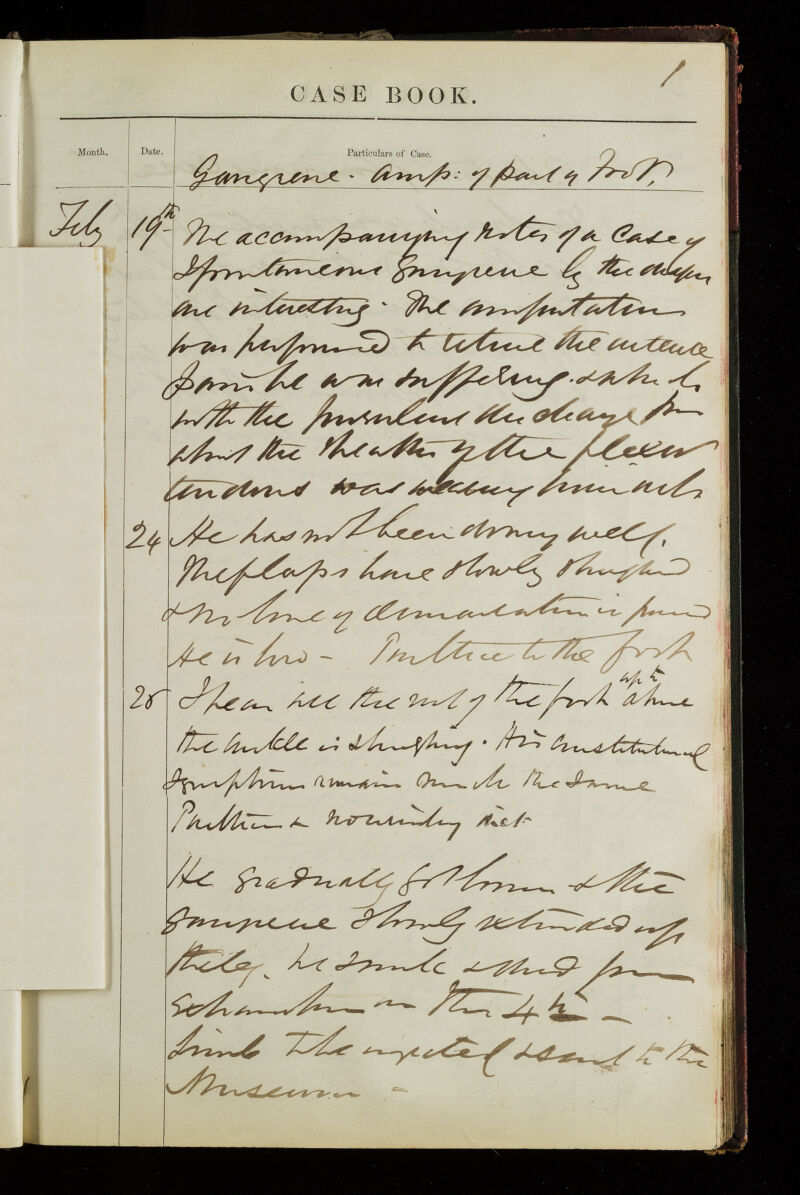 1
CASE BOOK.
Month. Date. Particulars of Case.
Gangrene. Amp: of part of Foot.
Feby 19th The accompanying notes of a case of
Spontaneous Gangrene by the dresser
are interesting. The amputation
was performed to relieve the intense
pain he was suffering & which
with the purulent discharge from
about the sheaths of the flexor
tendons was wearing him out
24 He has not been doing well.
The flaps have slowly sloughed
& no line of demarcation is formed
He is low - Poultice to the foot
28 I hear all the rest of the foot up to above
the ankle is sloughing. His constitutional
symptoms remain much the same
Poultice & nourishing diet
He gradually got lower & the
gangrene slowly extended up
the leg. he sunk & died from
exhaustion on the 4th -
Limb to be injected & sent to the
Museum -